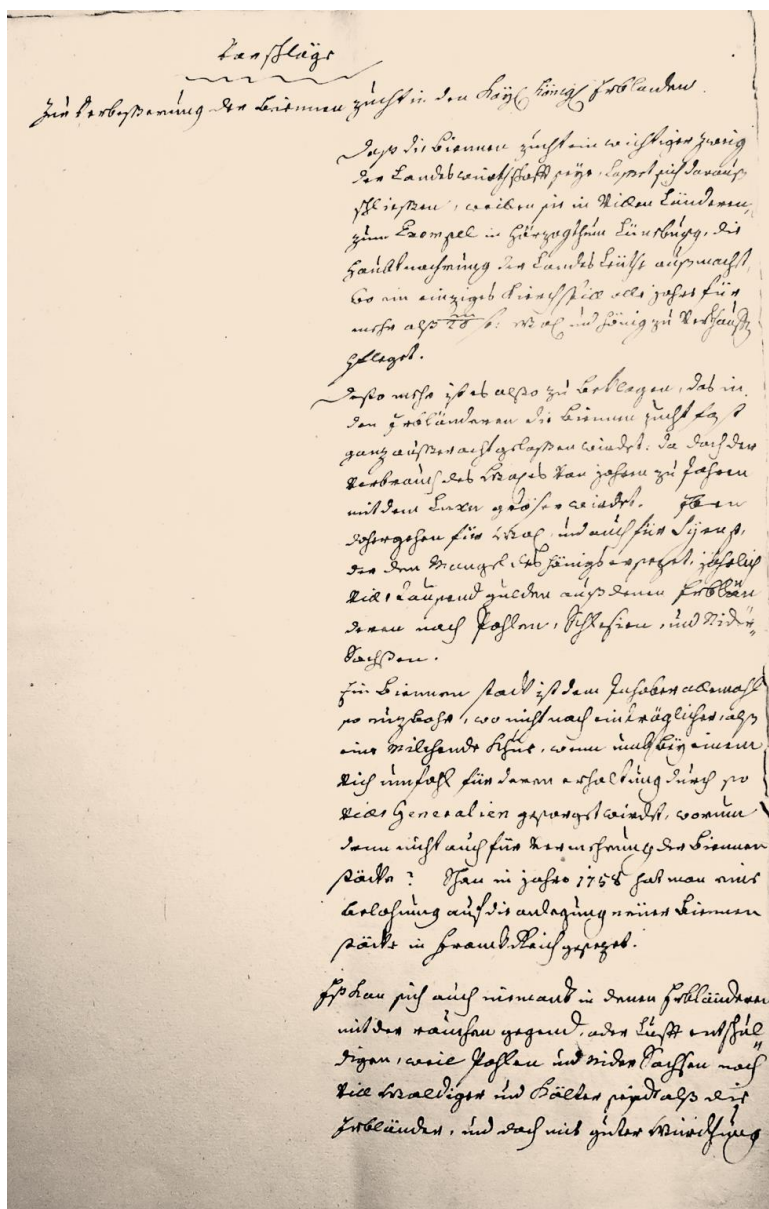 Vorschläge
Zur Verbeßerung der Biennen zucht in den Kayl. Königl. Erblanden.
Daß die Biennen zucht ein wichtiger zweig
der Landeswürthschafft seye, lasset sich darauß
schließen, weillen sie in Villen Länderen,
zum Exempel in Härzogthum Lünsburg, die
Haubtnachrung der Landes Leüthe außmachet,
wo ein einziges Kirchspill alle jahre für
mehr alß fl: Wax und Hönig zu Verkauffen
pfleget.
Desto mehr ist es also zu beklagen, das in
den Erbländeren die Biennen zucht fast
ganz außer acht gelaßen wirdet, da doch der
Verbrauch des Waxes Von jahren zu Jahren
mit dem Luxu größer wirdet. Eben
dahergehen für Wax und auch für Syrup,
der den Mangel des Hönigs ersezet, jährlich
Vill tausend gulden auß denen Erblän
deren nach Pohlen, Schlesien, und Nider
Sachßen.
Ein Biennen stock ist dem Inhaber allemahl
so nuzbahr, wo nicht noch einträglicher, alß
eine Milchende Khue, wenn bey einem
Vich umfahl für deren erhaltung durch so
Viele Generalien gesorget wirdet, warum
denn nicht auch für Vermehrung der Biennen
stöcke? Schon in jahre 1758 hat man eine
Belohnung auf die anlegung neüer Biennen
stöcke in Franckreich gesezet.
Eß kan sich auch niemant in denen Erbländeren
mit der rauchen gegend, oder Lufft entschul
digen, weil Pohlen und Nider Sachsen noch
Vill Waldiger und Kälter seynd alß die
Erbländer, und doch mit guter Würckhung